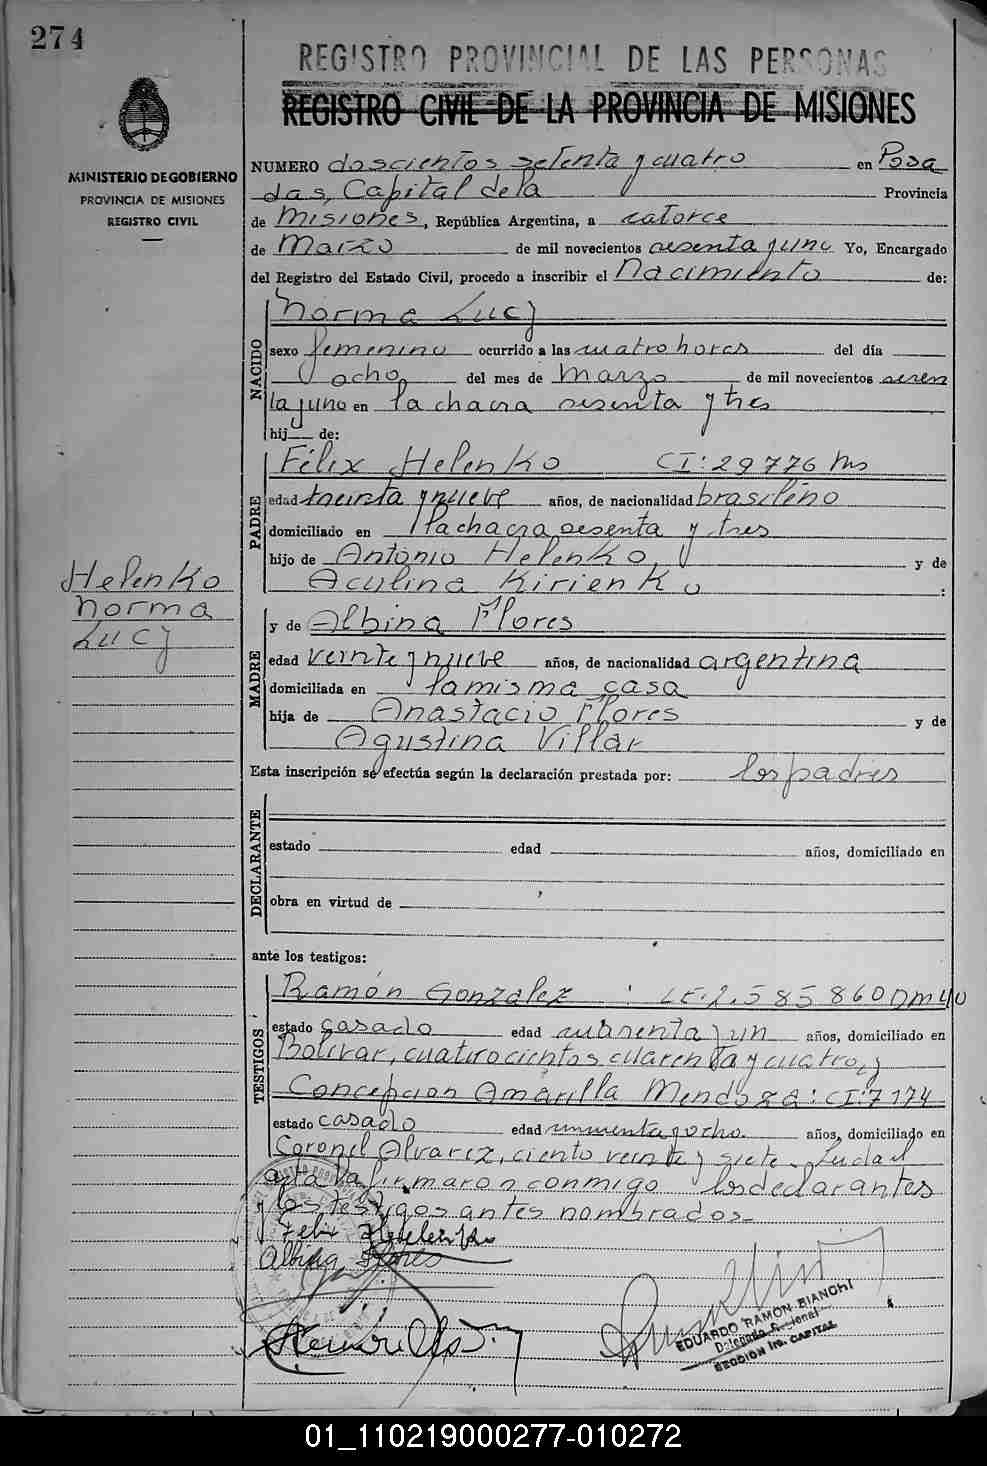 274
REGISTRO PROVINCIAL DE LAS PERSONAS
REGISTRO CIVIL DE LA PROVINCIA DE MISIONES
MINISTERIO DE GOBIERNO
PROVINCIA DE MISIONES
REGISTRO CIVIL
NUMERO doscientos setenta y cuatro en Posa
das, Capital de la Provincia
de Misiones, República Argentina, a catorce
de Marzo de mil novecientos sesenta y uno Yo, Encargado
del Registro del Estado Civil, procedo a inscribir el Nacimiento de:
NACIDO
Norma Lucy
sexo femenino ocurrido a las cuatro horas del día
ocho del mes de Marzo de mil novecientos sesen
ta y uno en la chacra sesenta y tres
hij de:
PADRE
Félix Helenko CI: 29776 Ms
edad treinta y nueve años, de nacionalidad brasileño
domiciliado en la chacra sesenta y tres
hijo de Antonio Helenko y de
Aculina Kirienko :
Helenko
Norma
Lucy
MADRE
y de Albina Flores
edad veinte y nueve años, de nacionalidad argentina
domiciliada en la misma casa
hija de Anastacio Flores y de
Agustina Villar
Esta inscripción se efectúa según la declaración prestada por: los padres
DECLARANTE
estado edad años, domiciliado en
obra en virtud de
ante los testigos:
TESTIGOS
Ramón Gonzalez : LE. 2.585860 DM 40
estado casado edad cuarenta y un años, domiciliado en
Bolivar, cuatrocientos cuarenta y cuatro, y
Concepcion Amarilla Mendoza: CI: 7174
estado casado edad y ocho años, domiciliado en
Coronel Alvarez, ciento veinte y siete. Leida el
acta la firmaron conmigo los declarantes
y los testigos antes nombrados.
Felix Helenko
Albina Flores
EDUARDO RAMON BIANCHI
Delegado Regional
SECCION 1ra. CAPITAL
01_110219000277-010272